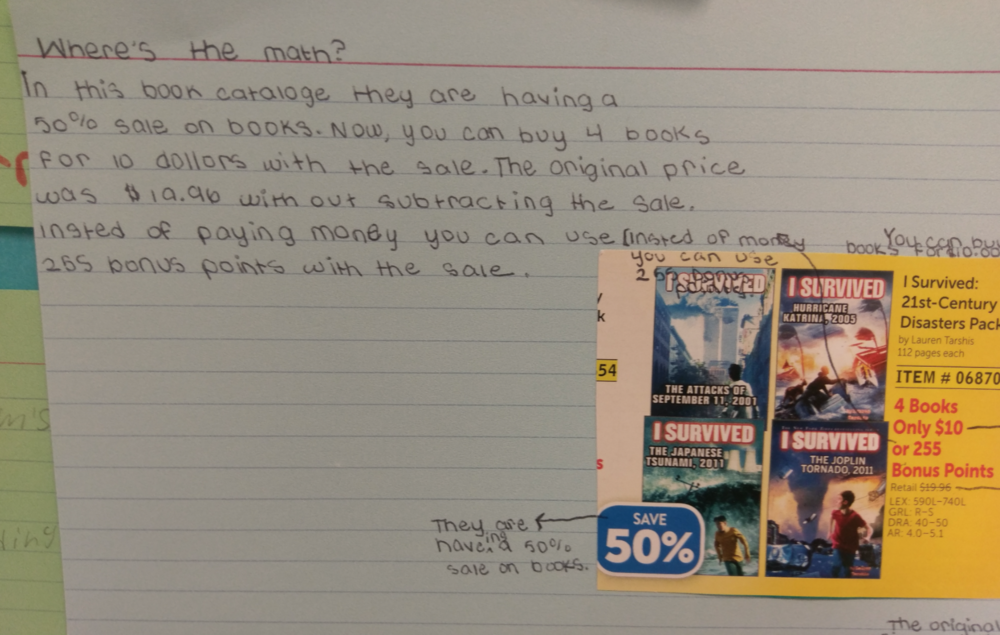 Where's the math?
In this book cataloge they are having a
50% sale on books. Now, you can buy 4 books
for 10 dollors with the sale. The original price
was $19.96 with out subtracting the sale.
insted of paying money you can use
255 bonus points with the sale.
[insted of money
you can use
255 bonus
points
You can bu
books for 10.00
I SURVIVED
THE ATTACKS OF
SEPTEMBER 11, 2001
I SURVIVED
HURRICANE
KATRINA, 2005
I SURVIVED
THE JAPANESE
TSUNAMI, 2011
I SURVIVED
THE JOPLIN
TORNADO, 2011
k
54
s
SAVE
50%
I Survived:
21st-Century
Disasters Pack
by Lauren Tarshis
112 pages each
ITEM # 06870
4 Books
Only $10
or 255
Bonus Points
Retail $19.96
LEX: 590L-740L
GRL: R-S
DRA: 40-50
AR: 4.0-5.1
They are
haveing a 50%
sale on books.
The original
m's